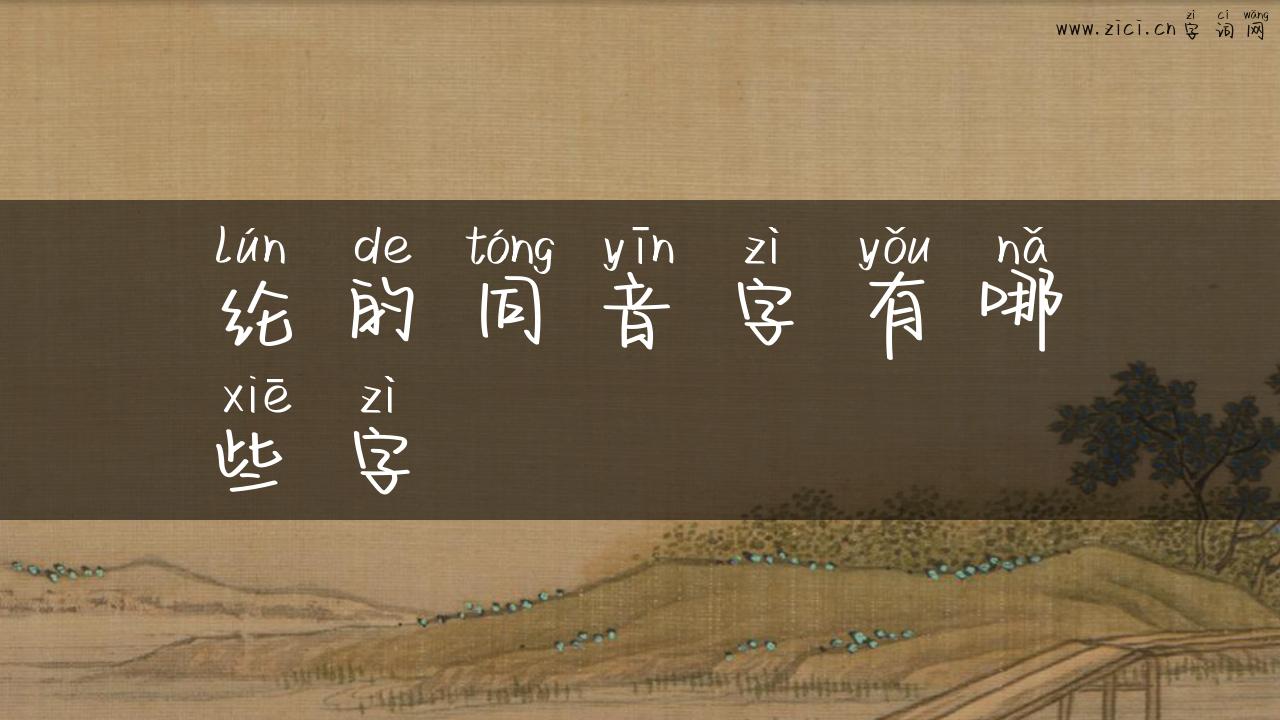 zì cí wǎng
www.zici.cn字词网
lún de tóng yīn zì yǒu nǎ
纶的同音字有哪
xiē zì
些字